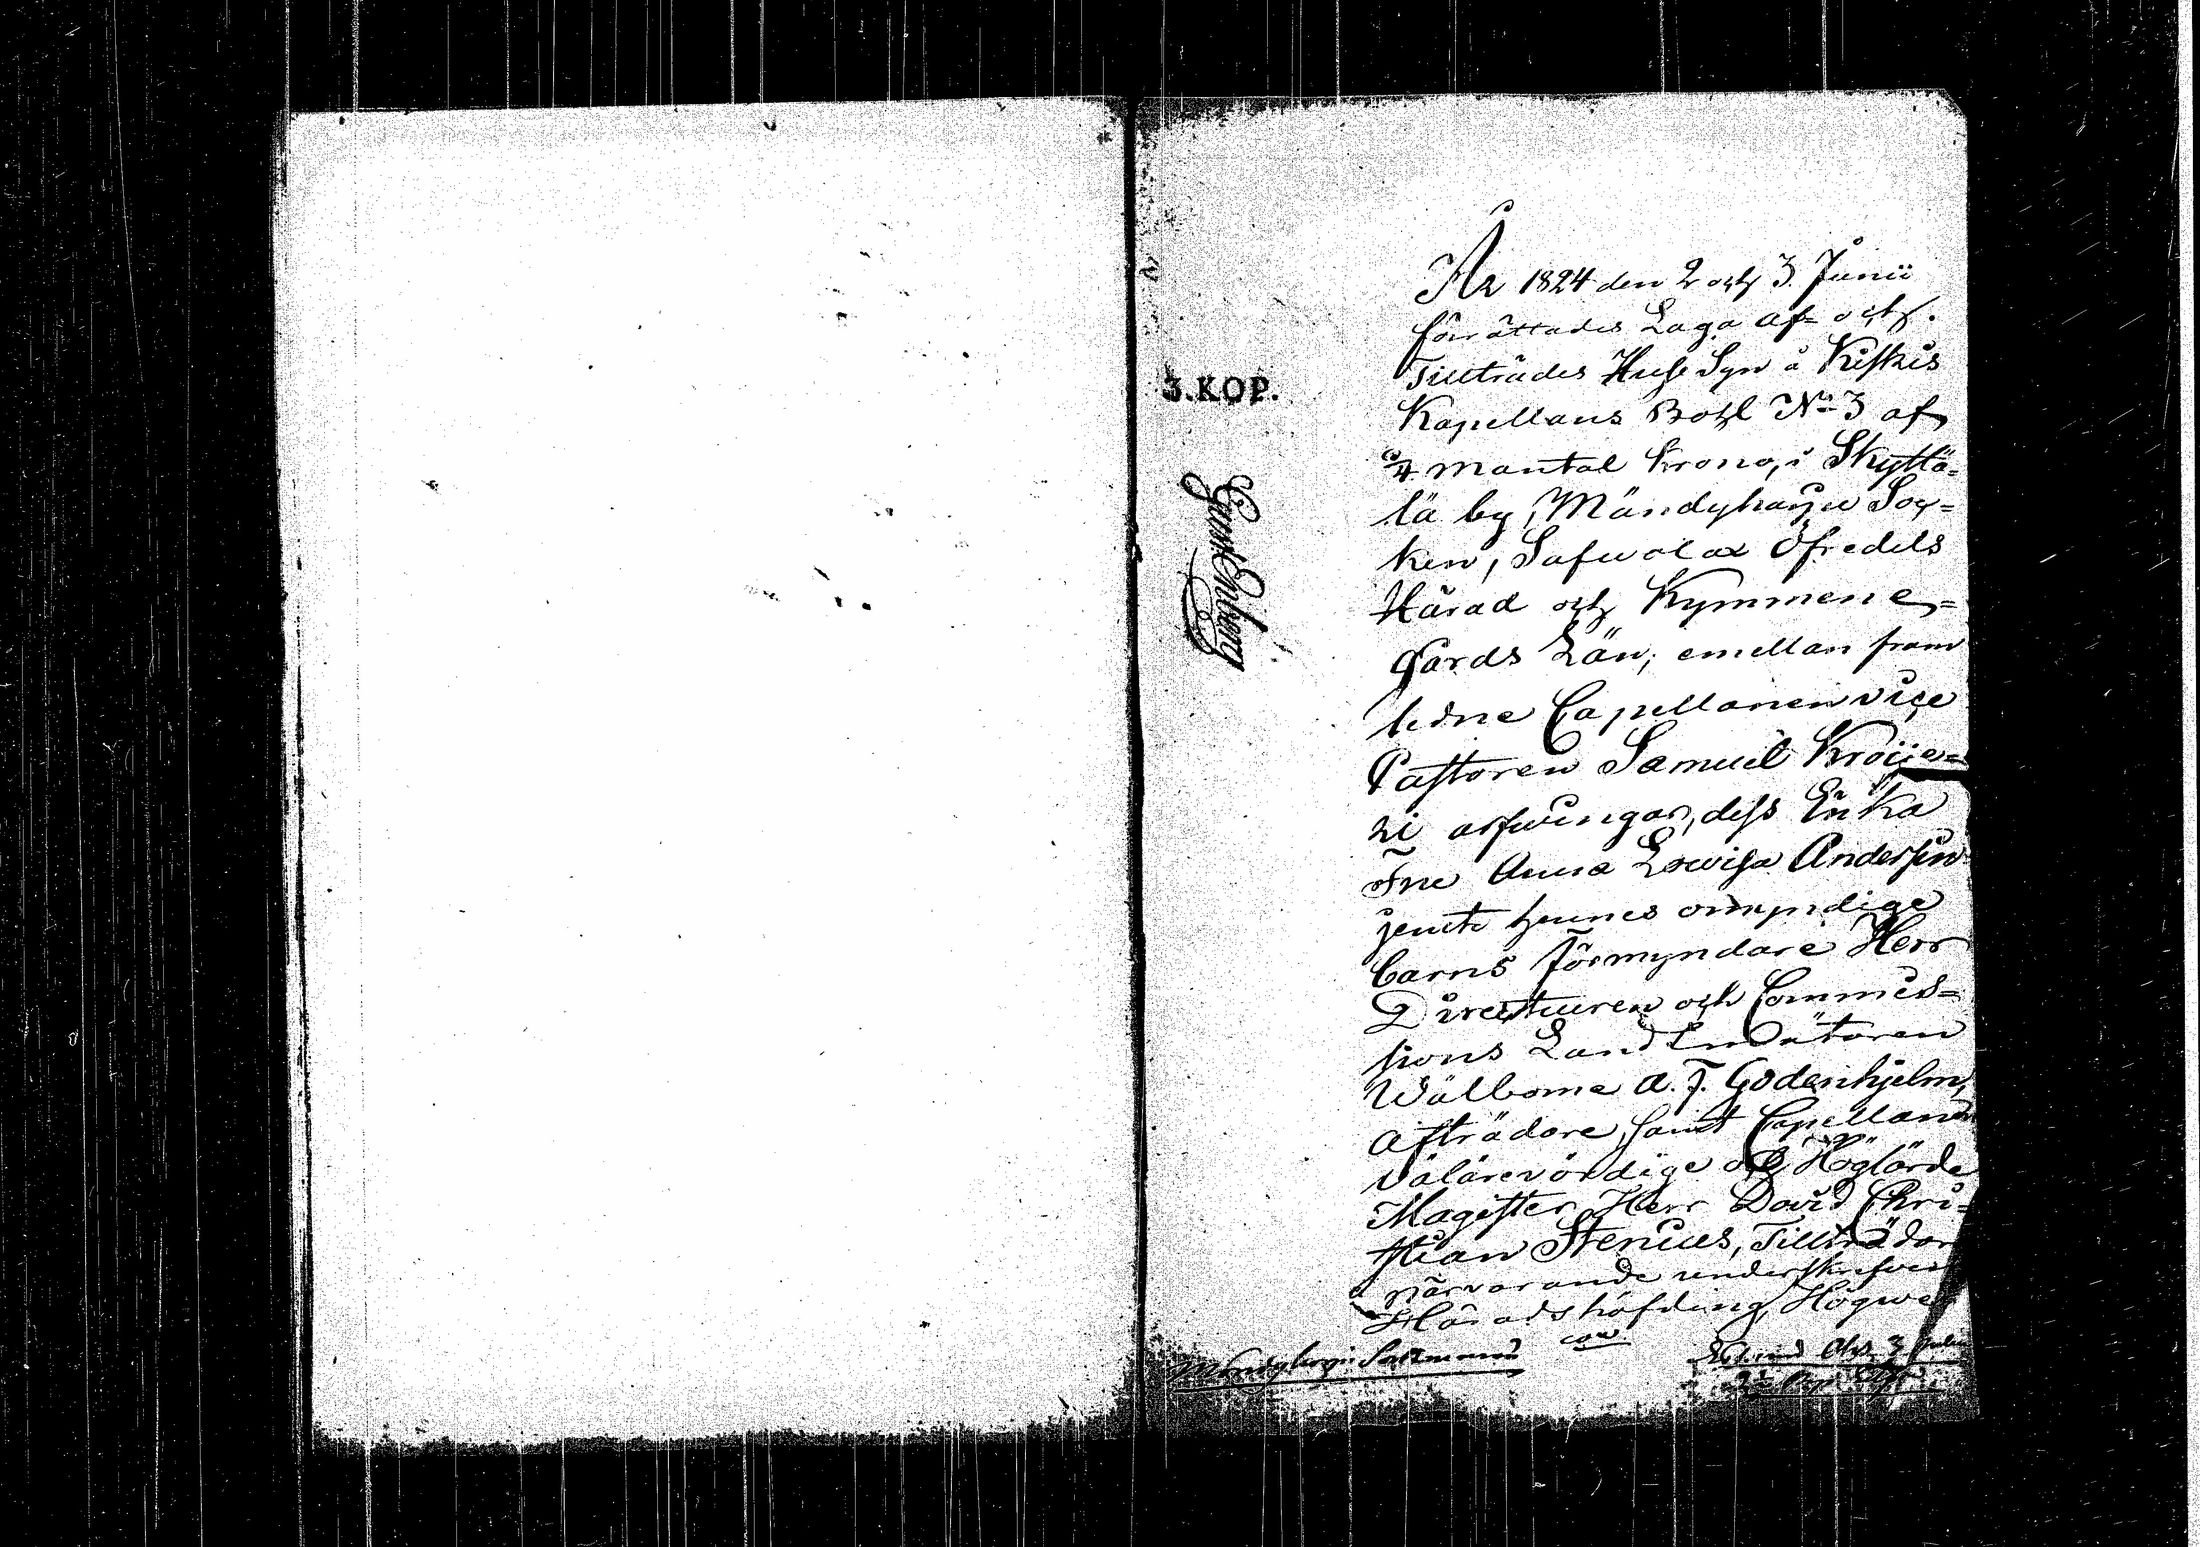 År 1824 den 2 och 3. Junii
förrättades Laga af- och.
Tillträdes Huse Syn å Kiskis
Kapellans Bohl No 3 af
3/4 mantal Krono, i Skyttä=
lä by, Mändyharju Soc=
ken, Safwolax Öfredels
Härad och Kymmene=
Gårds Län; emellan fram
ledne Capellanen vice
Pastoren Samuel Kröije=
ri arfwingar, dess Enka
Fru Anna Lowisa Andersin
jemte hennes omyndige
barns Förmyndare Herr
Directeuren och Commis=
sions Landtmätaren
Wälborne A. F. Godenhjelm,
Afträdare, samt Capellanen
Välärevördige och Höglärde
Magister Herr David Chri=
stian Stenius, Tillträdare
närvarande underskrefven
Häradshöfding, Högwe
3. KOP.
Enberg
Mändyharju Sockn